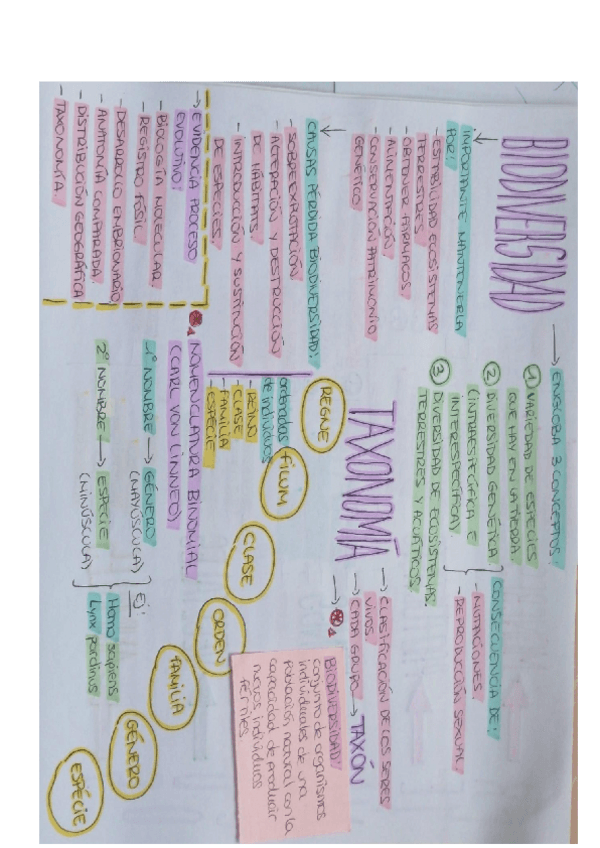 BIODIVERSIDAD
→ ENGLOBA 3 CONCEPTOS:
① VARIEDAD DE ESPECIES
QUE HAY EN LA TIERRA
② DIVERSIDAD GENÉTICA
(INTRAESPECÍFICA E
INTERESPECÍFICA).
③ DIVERSIDAD DE ECOSISTEMAS
TERRESTRES Y ACUÁTICOS.
CONSECUENCIA DE:
- MUTACIONES.
- REPRODUCCIÓN SEXUAL
IMPORTANTE MANTENERLA
POR:
- ESTABILIDAD ECOSISTEMAS
TERRESTRES
- OBTENER FÁRMACOS
- ALIMENTACIÓN.
- CONSERVACIÓN PATRIMONIO
GENÉTICO
CAUSAS PÉRDIDA BIODIVERSIDAD:
- SOBREEXPLOTACIÓN
- ALTERACIÓN Y DESTRUCCIÓN
DE HÁBITATS.
- INTRODUCCIÓN Y SUSTITUCIÓN
DE ESPECIES.
→ EVIDENCIA PROCESO
EVOLUTIVO:
- BIOLOGÍA MOLECULAR.
- REGISTRO FÓSIL
- DESARROLLO EMBRIONARIO
- ANATOMÍA COMPARADA.
- DISTRIBUCIÓN GEOGRÁFICA
- TAXONOMÍA.
TAXONOMÍA
→ CLASIFICACIÓN DE LOS SERES
VIVOS
→ CADA GRUPO → TAXÓN
→ 1
BIODIVERSIDAD:
conjunto de organismos
individuales de una
población natural con la
capacidad de producir
nuevos individuos
fértiles
ordenadas
de individuos
- REINO
- CLASE
- FAMILIA
- ESPECIE
REGNE
FILUM
CLASE
ORDEN
FAMÍLIA
GÉNERO
ESPÉCIE
1 NOMENCLATURA BINOMIAL
(CARL VON LINNEO)
1º NOMBRE → GÉNERO
(MAYÚSCULA)
2º NOMBRE → ESPECIE
(MINÚSCULA)
Ej:
Homo sapiens
Lynx pardinus